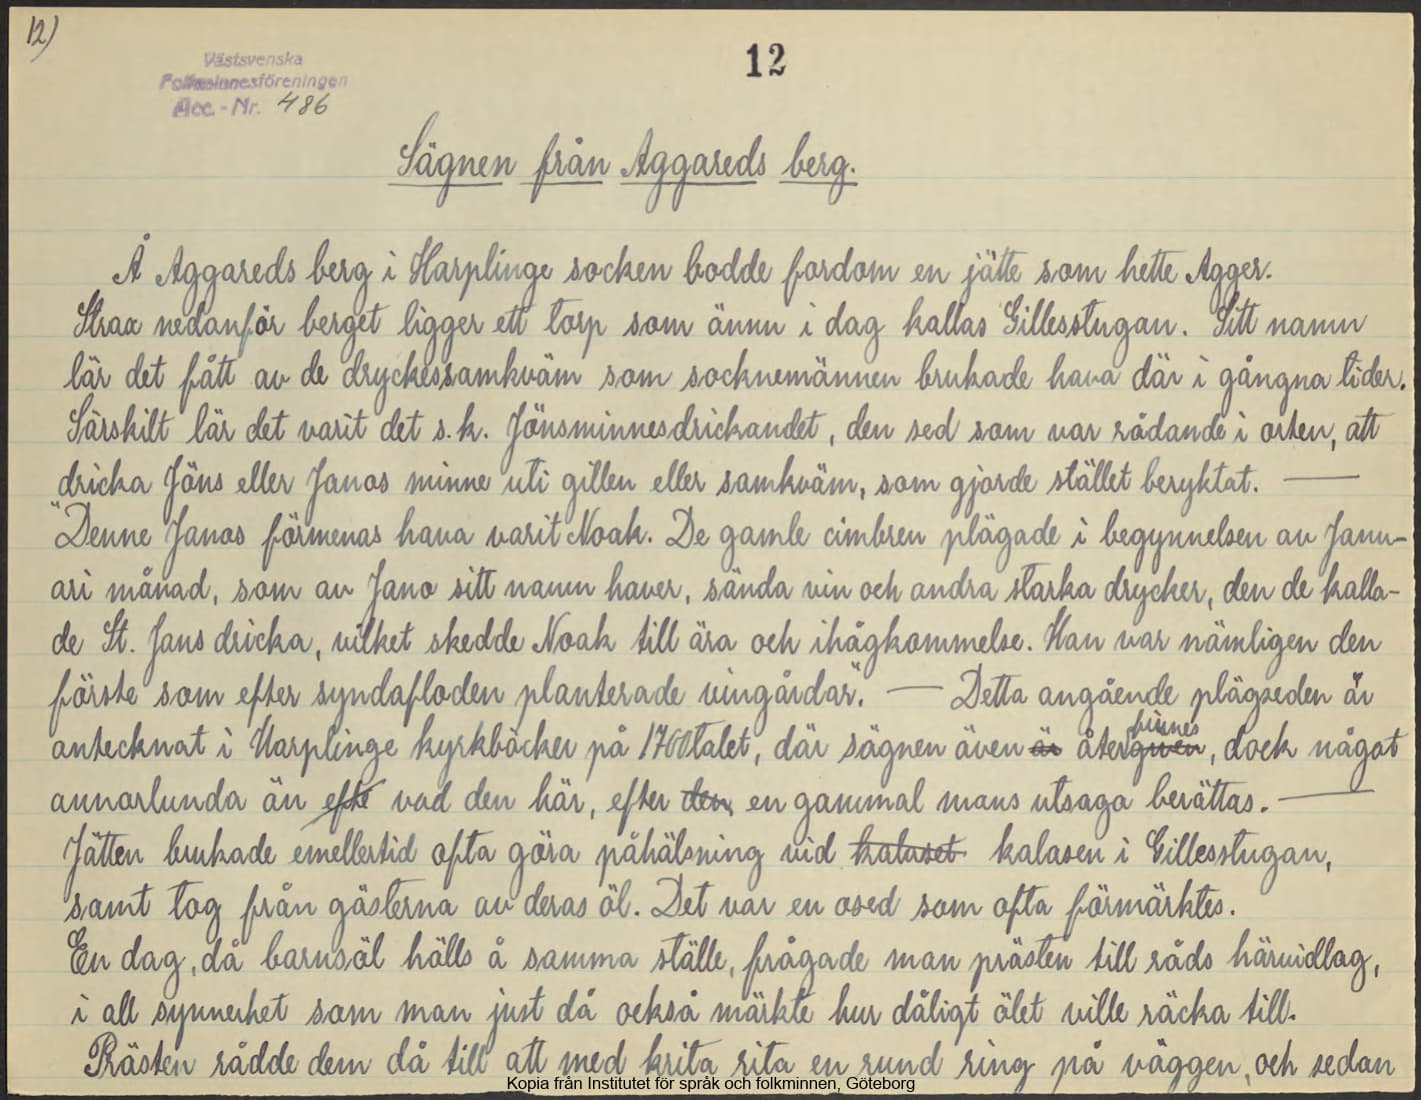 12)
12
Västsvenska
Folkminnesföreningen
Acc.-Nr. 486
Sägnen från Aggareds berg.
Å Aggareds berg i Harplinge socken bodde fordom en jätte som hette Agger.
Strax nedanför berget ligger ett torp som ännu i dag kallas Gillesstugan. Sitt namn
lär det fått av de dryckessamkväm som socknemännen brukade hava där i gångna tider.
Särskilt lär det varit det s.k. Jönsminnesdrickandet, den sed som var rådande i orten, att
dricka Jöns eller Janos minne uti gillen eller samkväm, som gjorde stället beryktat. —
"Denne Janos förmenas hava varit Noak. De gamle cimbren plägade i begynnelsen av Janu-
ari månad, som av Jano sitt namn haver, sända vin och andra starka drycker, den de kalla-
de St. Jans dricka, vilket skedde Noak till ära och ihågkommelse. Han var nämligen den
förste som efter syndafloden planterade vingårdar". — Detta angående plägseden är
antecknat i Harplinge kyrkböcker på 1700talet, där sägnen även är återgiven finnes, dock något
annorlunda än efte vad den här, efter den, en gammal mans utsago berättas. —
Jätten brukade emellertid ofta göra påhälsning vid kalaset kalasen i Gillesstugan,
samt tog från gästerna av deras öl. Det var en osed som ofta förmärktes.
En dag, då barnsöl hölls å samma ställe, frågade man prästen till råds härvidlag,
i all synnerhet som man just då också märkte hur dåligt ölet ville räcka till.
Prästen rådde dem då till att med krita rita en rund ring på väggen, och sedan
Kopia från Institutet för språk och folkminnen, Göteborg